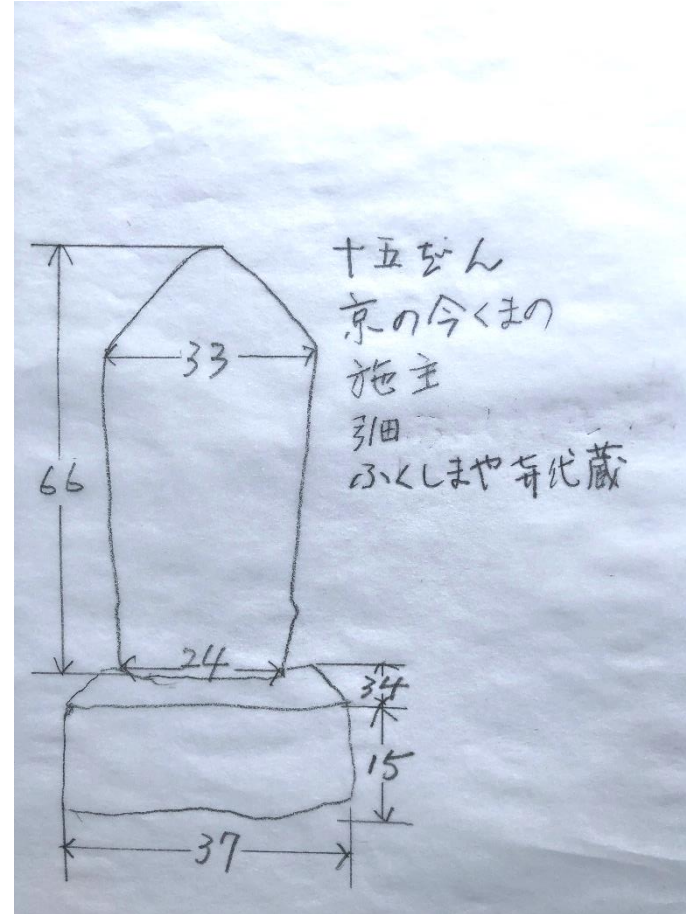 十五ばん
京の今くまの
施主
引田
ふくしまや 代蔵
33
66
24
34
15
37